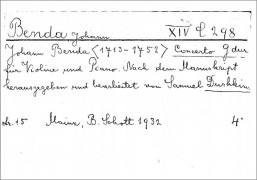 Benda, Johann XIV C 298
Johann Benda (1713-1752) Concerto G dur
für Violine und Piano. Nach dem Manuskript
herausgegeben und bearbeitet von Samuel Dushkin.
Nr. 15 Mainz, B. Schott 1932 4°